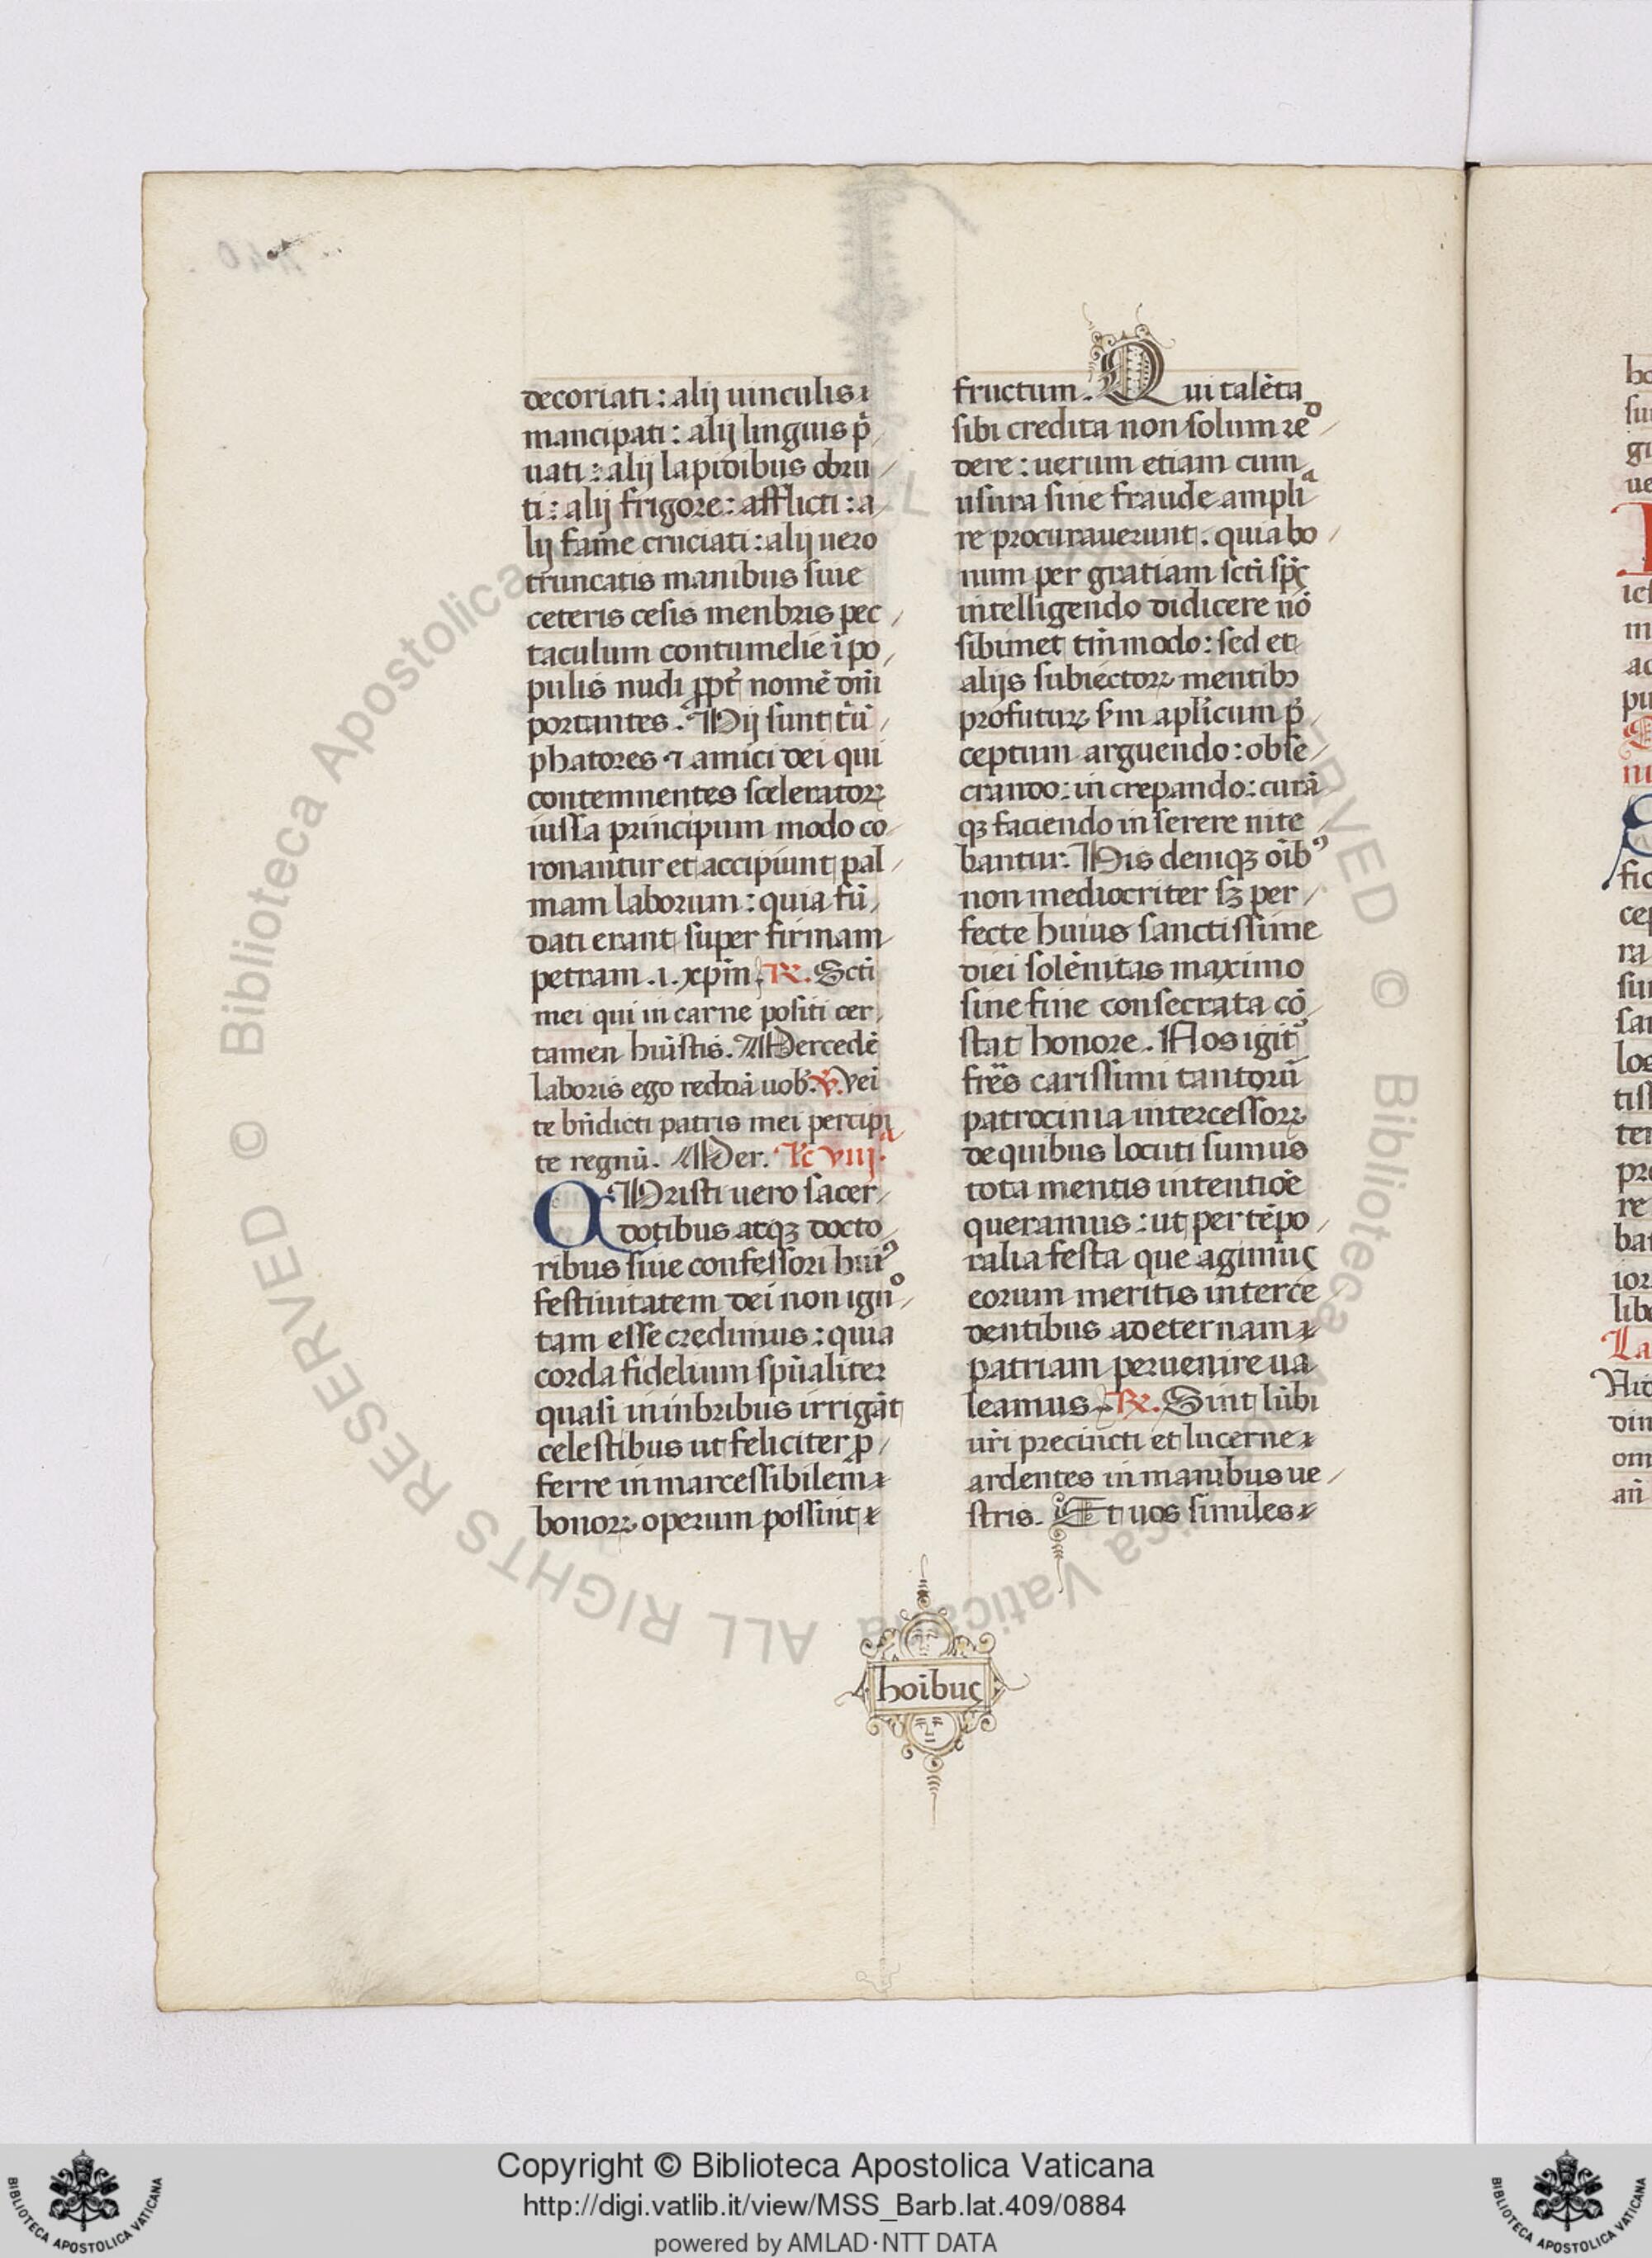 decoriati : alij uinculis
mancipati : alij linguis p̃
uati : alij lapidibus obru
ti : alij frigore : afflicti : a
lij fame cruciati : alij uero
truncatis manibus siue
ceteris cesis menbris pec
taculum contumelie ĩ po
pulis nudi ꝓpt̃ nomẽ dñi
portantes . Hij sunt tũ
phatores ⁊ amici dei qui
contemnentes sceleratoꝝ
iussa principum modo co
ronantur et accipiunt pal
mam laborum : quia fũ
dati erant super firmam
petram .i. xp̃m . ℞. Scti
mei qui in carne positi cer
tamen huistis . Mercedẽ
laboris ego reddã uob̃ . ℣. Vei
te bñdicti patris mei percipi
te regnũ . Mer. Lc̃ viijᵃ.
Christi uero sacer
dotibus atqꝫ docto
ribus siue confessori huiꝰ
festiuitatem dei non ignᵒ
tam esse credimus : quia
corda fidelium spũaliter
quasi in inbribus irrigãt
celestibus ut feliciter ꝓ
ferre inmarcessibilem
bonoꝝ operum possint
fructum . Qui talẽta
sibi credita non solum reᵈ
dere : uerum etiam cum
usura sine fraude ampliᵃ
re procurauerunt . quia bo
num per gratiam scti sp̃s
intelligendo didicere nõ
sibimet tm̃modo : sed et
alijs subiectoꝝ mentibꝫ
profutuꝝ s̃m apl̃icum p̃
ceptum arguendo : obse
crando : in crepando : curã
qꝫ faciendo in serere nite
bantur . His deniqꝫ oĩbꝰ
non mediocriter sꝫ per
fecte huius sanctissime
diei solẽnitas maximo
sine fine consecrata cõ
stat honore . Nos igit᷑
frẽs carissimi tantorũ
patrocinia intercessoꝝ
de quibus locuti sumus
tota mentis intentiõe
queramus : ut per tẽpo
ralia festa que agimus
eorum meritis interce
dentibus ad eternam
patriam peruenire ua
leamus . ℞. Sint lũbi
uri precincti et lucerne
ardentes in manibus ue
stris . Et uos similes
hoĩbus
Copyright © Biblioteca Apostolica Vaticana
http://digi.vatlib.it/view/MSS_Barb.lat.409/0884
powered by AMLAD·NTT DATA
BIBLIOTECA APOSTOLICA VATICANA
BIBLIOTECA APOSTOLICA VATICANA
© Biblioteca Apostolica Vaticana ALL RIGHTS RESERVED